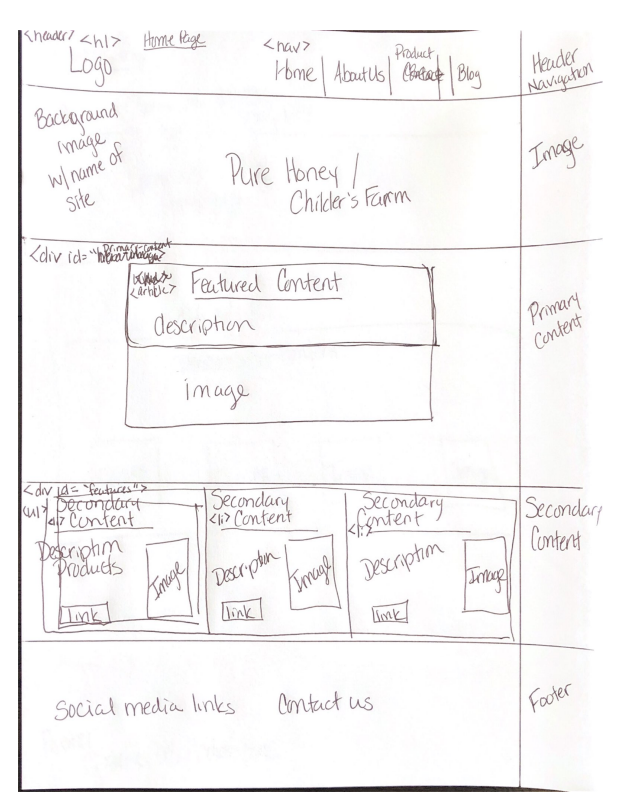 <header> <h1> Home Page <nav>
Logo
Home | About Us | Product | Blog
Header
Navigation
Background
image
w/ name of
site
Pure Honey /
Childer's Farm
Image
<div id="Primary-content
<article> Featured Content
description
image
Primary
Content
<div id="features">
<ul> Secondary
<li> Content
Description
Products
Image
link
Secondary
<li> Content
Description
Image
link
Secondary
Content
<li>
Description
Image
link
Secondary
Content
Social media links Contact us
Footer